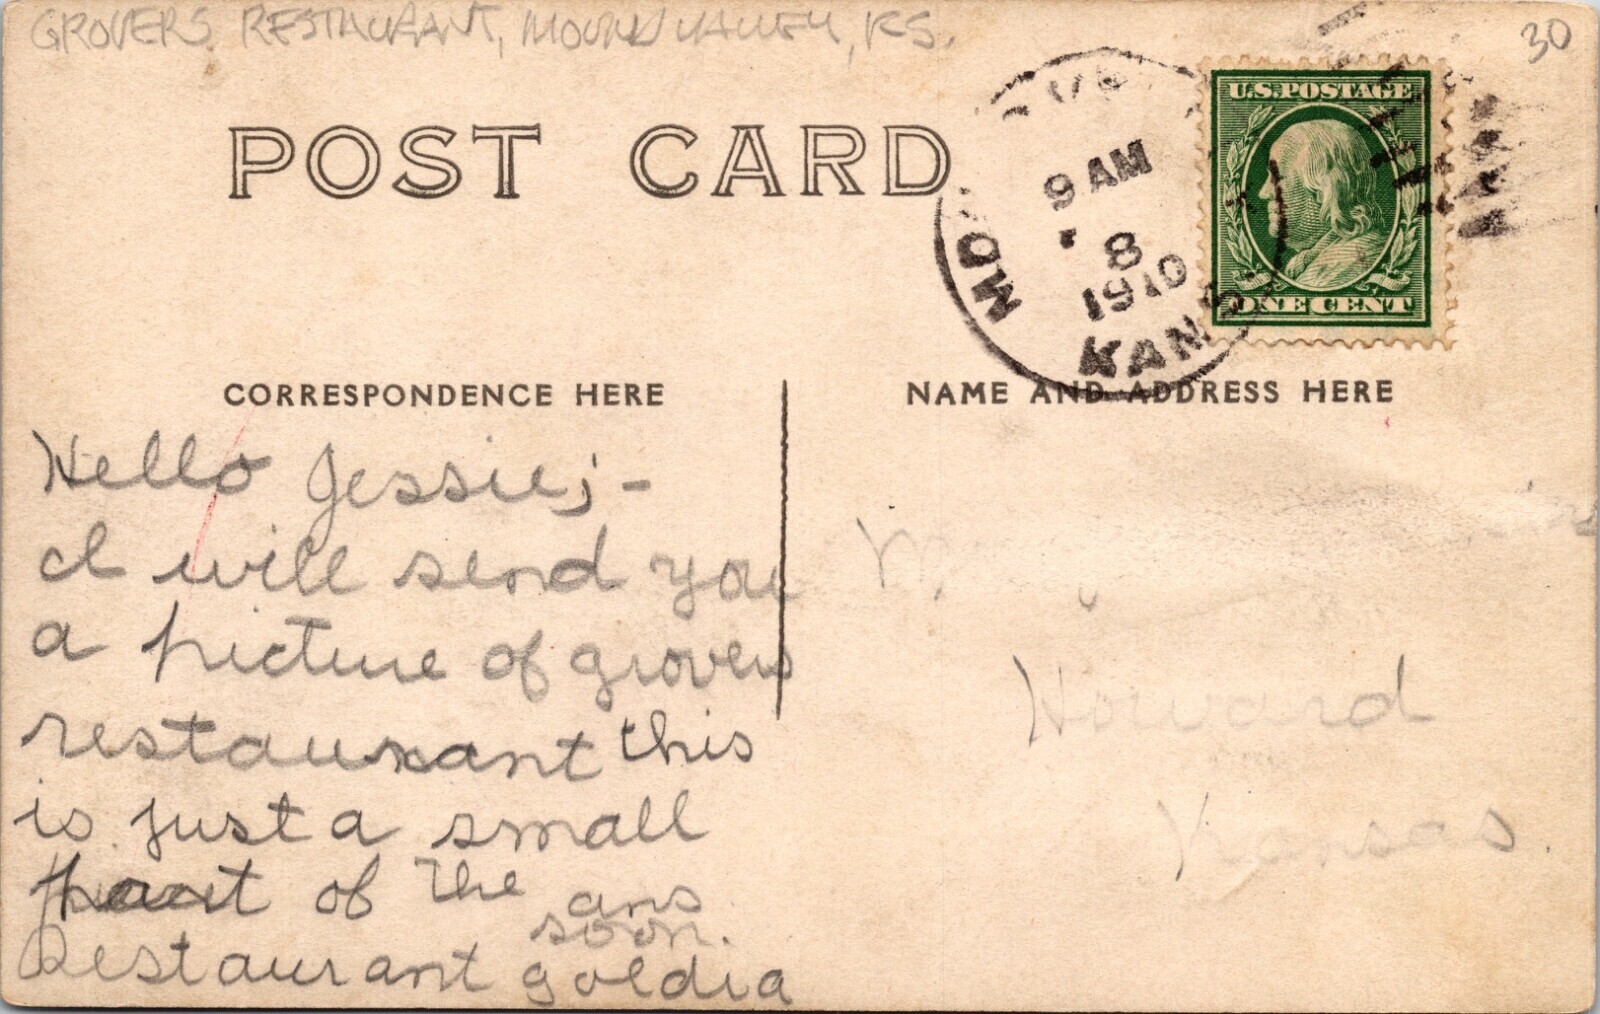 GROVERS RESTAURANT, MOUND VALLEY, KS.
30
POST CARD
U.S. POSTAGE
ONE CENT
9 AM
8
1910
KANS
CORRESPONDENCE HERE
NAME AND ADDRESS HERE
Hello Jessie;-
I will send you
a picture of grovers
restaurant this
is just a small
part of the
Restaurant
ans
soon.
goldia
Howard
Kansas.